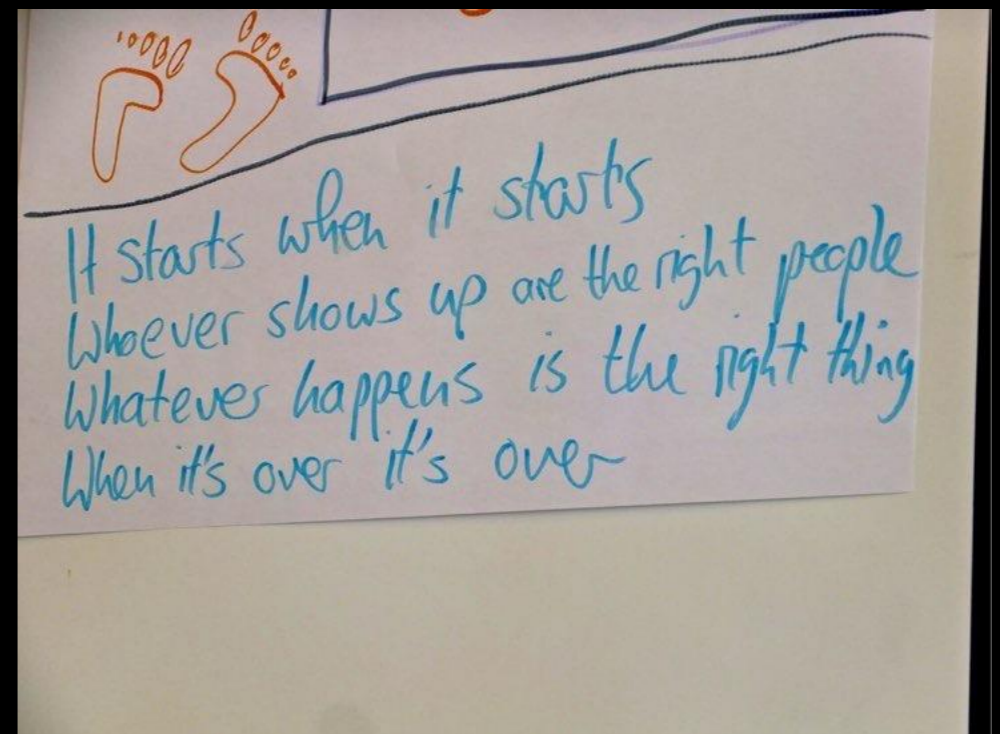 It starts when it starts
Whoever shows up are the right people
Whatever happens is the right thing
When it's over it's over